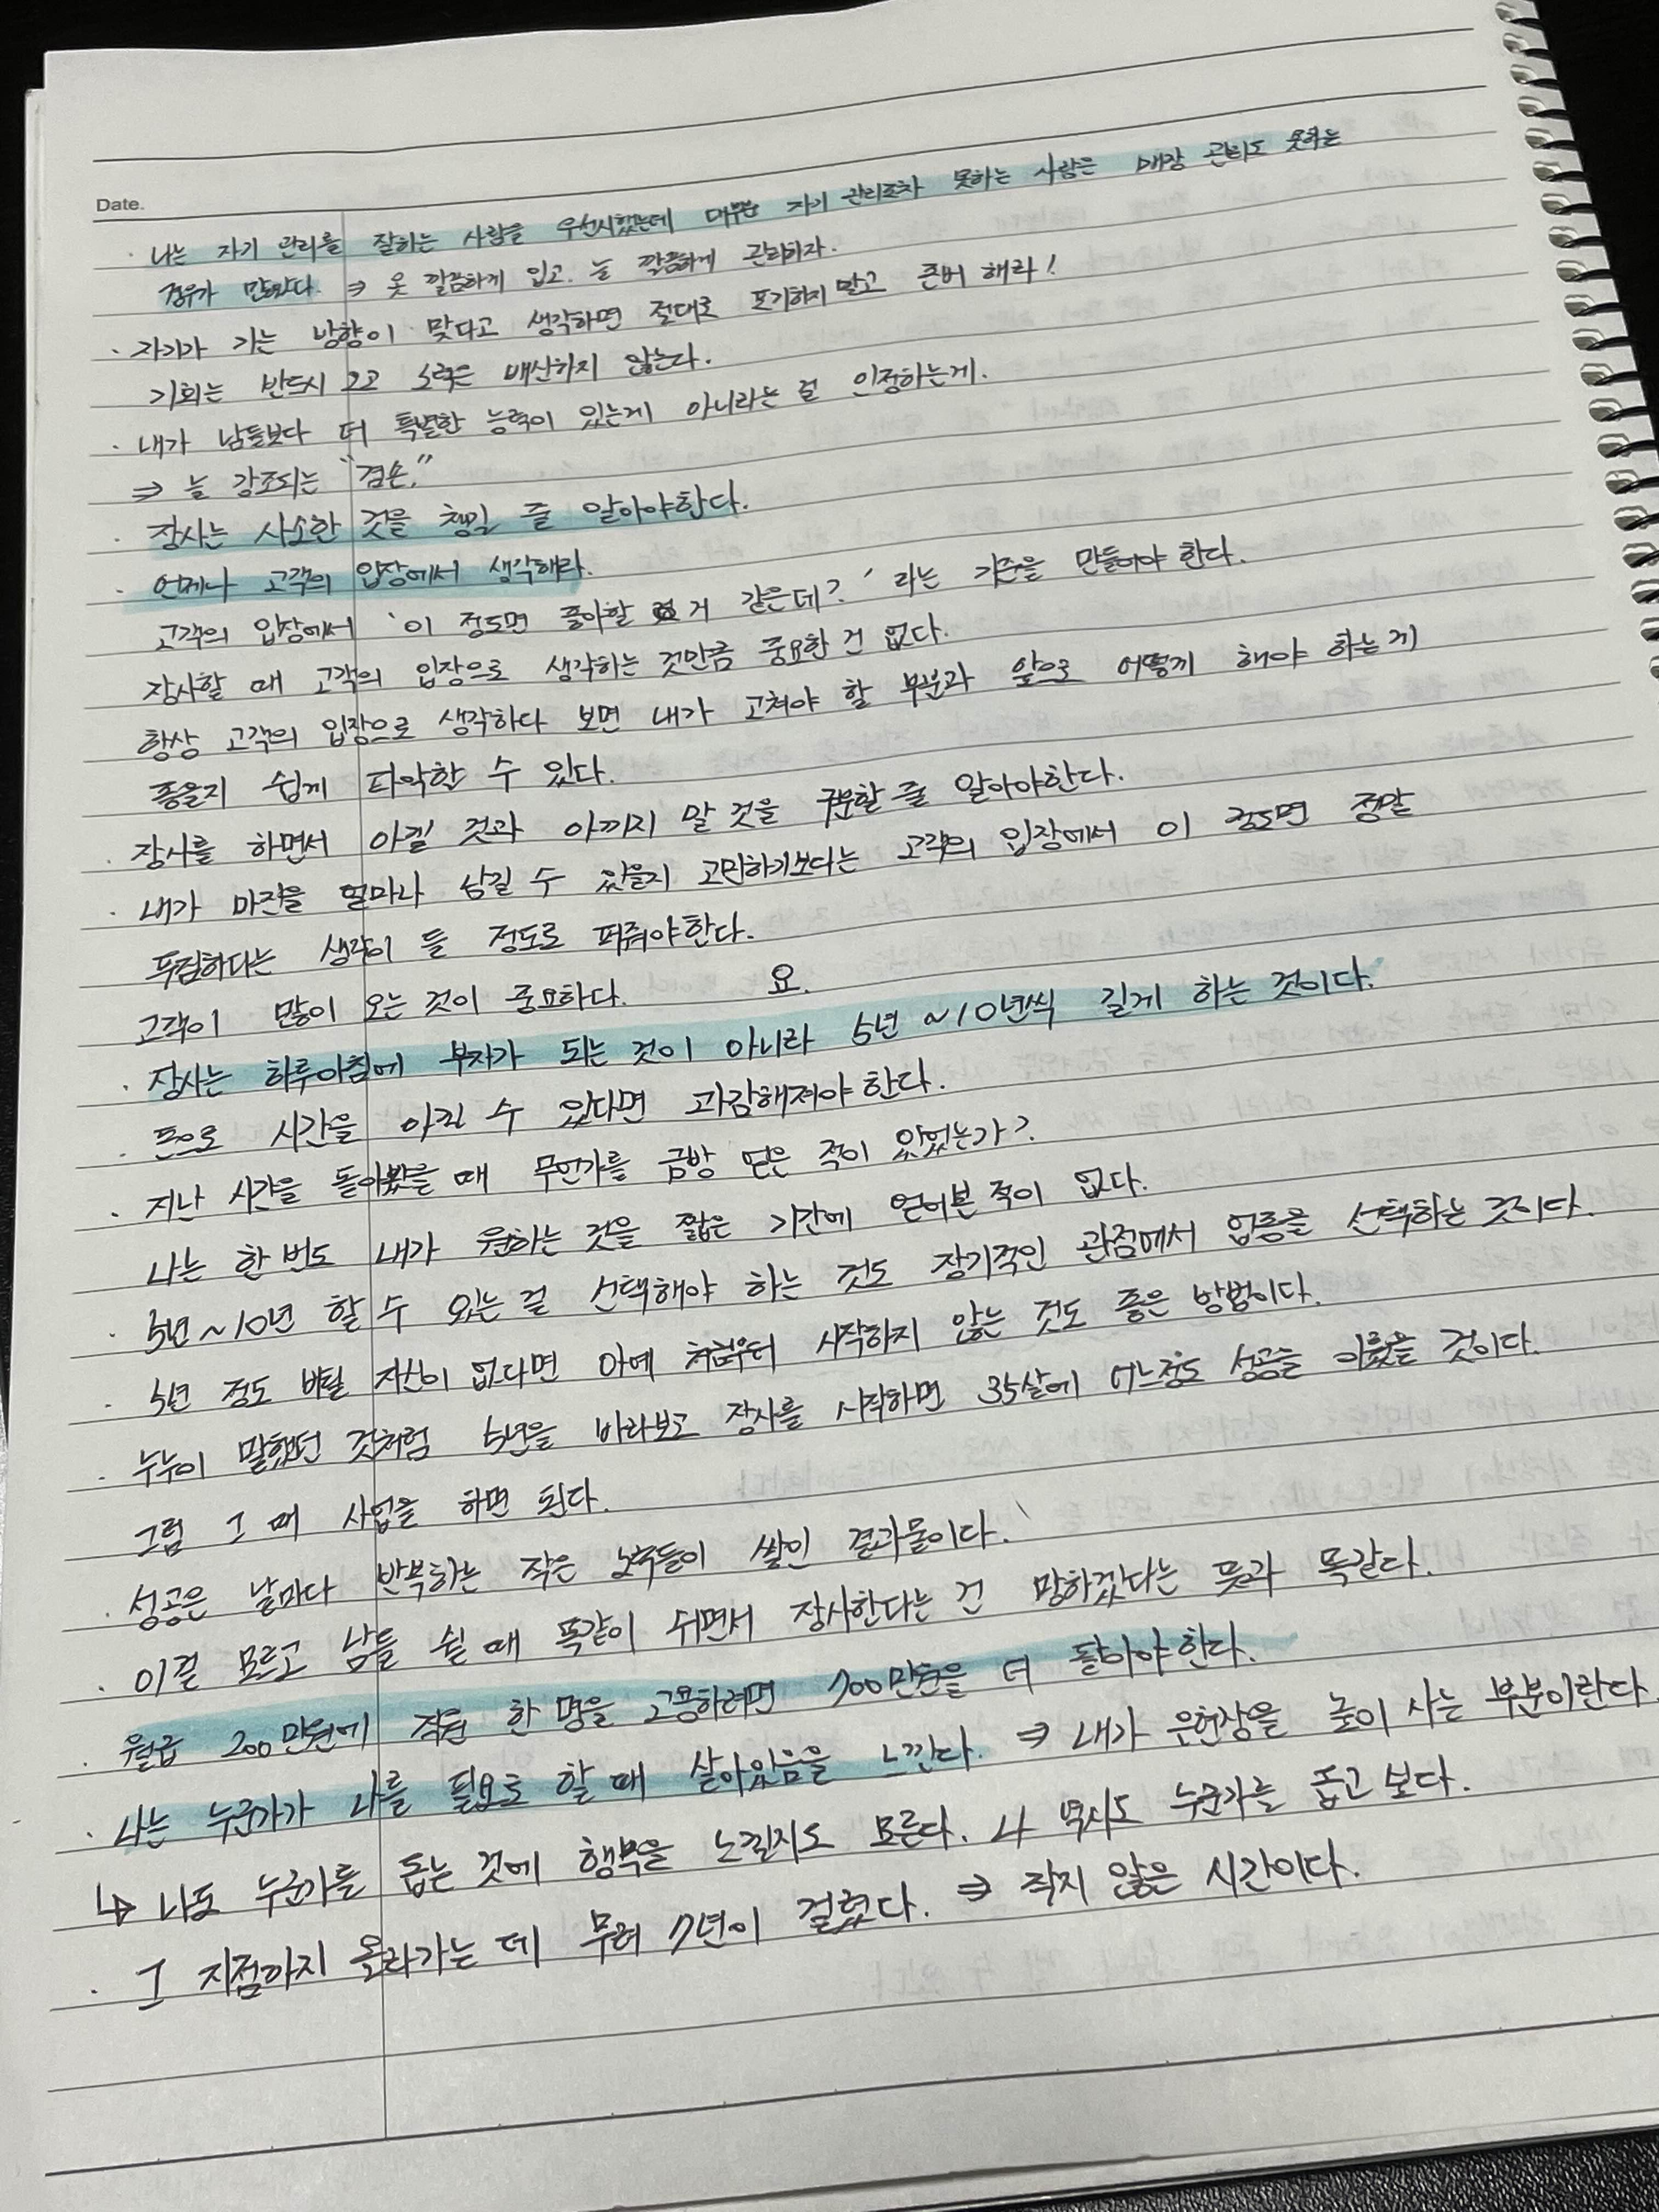 Date.
· 나는 자기 관리를 잘하는 사람을 우선시했는데 대부분 자기 관리조차 못하는 사람은 매장 관리도 못하는
경우가 많았다. ⇒ 옷 깔끔하게 입고. 늘 깔끔하게 관리하자.
· 자기가 가는 방향이 맞다고 생각하면 절대로 포기하지 말고 존버 해라!
기회는 반드시 오고 노력은 배신하지 않는다.
· 내가 남들보다 더 특별한 능력이 있는게 아니라는 걸 인정하는게.
⇒ 늘 강조되는 "겸손."
· 장사는 사소한 것을 챙길 줄 알아야한다.
· 언제나 고객의 입장에서 생각해라.
고객의 입장에서 '이 정도면 좋아할 거 같은데?' 라는 기준을 만들어야 한다.
장사할 때 고객의 입장으로 생각하는 것만큼 중요한 건 없다.
항상 고객의 입장으로 생각하다 보면 내가 고쳐야 할 부분과 앞으로 어떻게 해야 하는게
좋을지 쉽게 파악할 수 있다.
· 장사를 하면서 아낄 것과 아끼지 말 것을 구분할 줄 알아야한다.
· 내가 마진을 얼마나 남길 수 있을지 고민하기보다는 고객의 입장에서 이 정도면 정말
푸짐하다는 생각이 들 정도로 퍼줘야한다.
고객이 많이 오는 것이 중요하다. 요.
· 장사는 하루아침에 부자가 되는 것이 아니라 5년 ~10년씩 길게 하는 것이다.
· 돈으로 시간을 아낄 수 있다면 과감해져야 한다.
· 지난 시간을 돌아봤을 때 무언가를 금방 얻은 적이 있었는가?
나는 한 번도 내가 원하는 것을 짧은 기간에 얻어본 적이 없다.
· 5년~10년 할 수 있는 걸 선택해야 하는 것도 장기적인 관점에서 업종을 선택하는 것이다.
· 5년 정도 버틸 자신이 없다면 아예 처음부터 시작하지 않는 것도 좋은 방법이다.
· 누누이 말했던 것처럼 5년을 바라보고 장사를 시작하면 35살에 어느정도 성공을 이뤘을 것이다.
그럼 그 때 사업을 하면 된다.
· 성공은 날마다 반복하는 작은 노력들이 쌓인 결과물이다.
· 이걸 모르고 남들 쉴 때 똑같이 쉬면서 장사한다는 건 망하겠다는 뜻과 똑같다.
· 월급 200만원에 직원 한 명을 고용하려면 700만원을 더 팔아야 한다.
· 나는 누군가가 나를 필요로 할 때 살아있음을 느낀다. ⇒ 내가 은현장을 높이 사는 부분이란다.
↳ 나도 누군가를 돕는 것에 행복을 느낄지도 모른다. 나 역시도 누군가를 돕고 보다.
· 그 지점까지 올라가는 데 무려 7년이 걸렸다. ⇒ 작지 않은 시간이다.